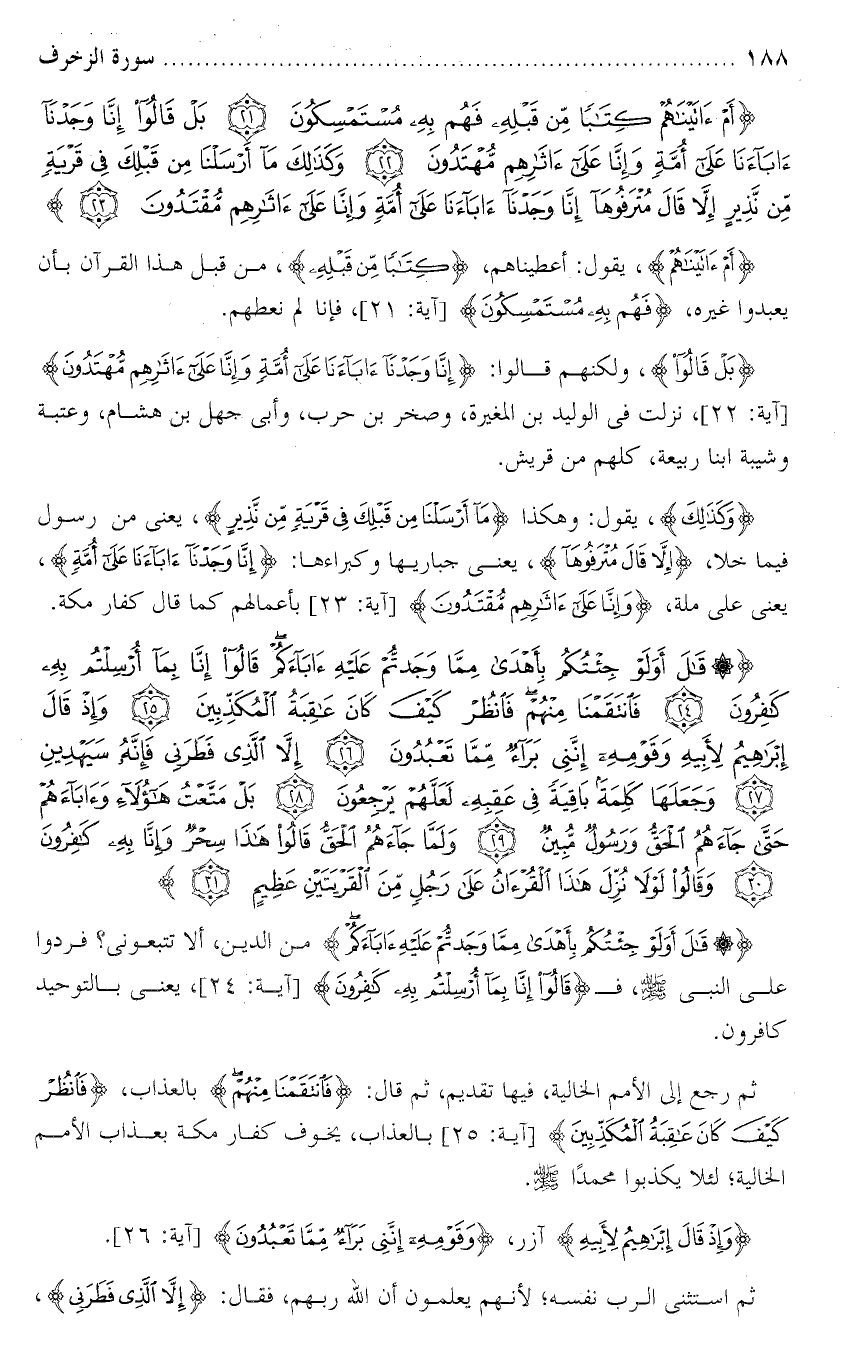 ١٨٨ ........................................................ سورة الزخرف
﴿أَمْ ءَاتَيْنَٰهُمْ كِتَٰبًا مِّن قَبْلِهِۦ فَهُم بِهِۦ مُسْتَمْسِكُونَ ۝٢١ بَلْ قَالُوٓا۟ إِنَّا وَجَدْنَآ
ءَابَآءَنَا عَلَىٰٓ أُمَّةٍ وَإِنَّا عَلَىٰٓ ءَاثَٰرِهِم مُّهْتَدُونَ ۝٢٢ وَكَذَٰلِكَ مَآ أَرْسَلْنَا مِن قَبْلِكَ فِى قَرْيَةٍ
مِّن نَّذِيرٍ إِلَّا قَالَ مُتْرَفُوهَآ إِنَّا وَجَدْنَآ ءَابَآءَنَا عَلَىٰٓ أُمَّةٍ وَإِنَّا عَلَىٰٓ ءَاثَٰرِهِم مُّقْتَدُونَ ۝٢٣ ﴾
﴿أَمْ ءَاتَيْنَٰهُمْ﴾، يقول: أعطيناهم، ﴿كِتَٰبًا مِّن قَبْلِهِۦ﴾، من قبل هذا القرآن بأن
يعبدوا غيره، ﴿فَهُم بِهِۦ مُسْتَمْسِكُونَ﴾ [آية: ٢١]، فإنا لم نعطهم.
﴿بَلْ قَالُوٓا۟﴾، ولكنهم قالوا: ﴿إِنَّا وَجَدْنَآ ءَابَآءَنَا عَلَىٰٓ أُمَّةٍ وَإِنَّا عَلَىٰٓ ءَاثَٰرِهِم مُّهْتَدُونَ﴾
[آية: ٢٢]، نزلت فى الوليد بن المغيرة، وصخر بن حرب، وأبى جهل بن هشام، وعتبة
وشيبة ابنا ربيعة، كلهم من قريش.
﴿وَكَذَٰلِكَ﴾، يقول: وهكذا ﴿مَآ أَرْسَلْنَا مِن قَبْلِكَ فِى قَرْيَةٍ مِّن نَّذِيرٍ﴾، يعنى من رسول
فيما خلا، ﴿إِلَّا قَالَ مُتْرَفُوهَآ﴾، يعنى جباريها وكبراءها: ﴿إِنَّا وَجَدْنَآ ءَابَآءَنَا عَلَىٰٓ أُمَّةٍ﴾،
يعنى على ملة، ﴿وَإِنَّا عَلَىٰٓ ءَاثَٰرِهِم مُّقْتَدُونَ﴾ [آية: ٢٣] بأعمالهم كما قال كفار مكة.
﴿۞ قَٰلَ أَوَلَوْ جِئْتُكُم بِأَهْدَىٰ مِمَّا وَجَدتُّمْ عَلَيْهِ ءَابَآءَكُمْ ۖ قَالُوٓا۟ إِنَّا بِمَآ أُرْسِلْتُم بِهِۦ
كَٰفِرُونَ ۝٢٤ فَٱنتَقَمْنَا مِنْهُمْ ۖ فَٱنظُرْ كَيْفَ كَانَ عَٰقِبَةُ ٱلْمُكَذِّبِينَ ۝٢٥ وَإِذْ قَالَ
إِبْرَٰهِيمُ لِأَبِيهِ وَقَوْمِهِۦٓ إِنَّنِى بَرَآءٌ مِّمَّا تَعْبُدُونَ ۝٢٦ إِلَّا ٱلَّذِى فَطَرَنِى فَإِنَّهُۥ سَيَهْدِينِ
۝٢٧ وَجَعَلَهَا كَلِمَةًۢ بَاقِيَةً فِى عَقِبِهِۦ لَعَلَّهُمْ يَرْجِعُونَ ۝٢٨ بَلْ مَتَّعْتُ هَٰٓؤُلَآءِ وَءَابَآءَهُمْ
حَتَّىٰ جَآءَهُمُ ٱلْحَقُّ وَرَسُولٌ مُّبِينٌ ۝٢٩ وَلَمَّا جَآءَهُمُ ٱلْحَقُّ قَالُوا۟ هَٰذَا سِحْرٌ وَإِنَّا بِهِۦ كَٰفِرُونَ
۝٣٠ وَقَالُوا۟ لَوْلَا نُزِّلَ هَٰذَا ٱلْقُرْءَانُ عَلَىٰ رَجُلٍ مِّنَ ٱلْقَرْيَتَيْنِ عَظِيمٍ ۝٣١ ﴾
﴿۞ قَٰلَ أَوَلَوْ جِئْتُكُم بِأَهْدَىٰ مِمَّا وَجَدتُّمْ عَلَيْهِ ءَابَآءَكُمْ ۖ﴾ من الدين، ألا تتبعونى؟ فردوا
على النبى ﷺ، فـ ﴿قَالُوٓا۟ إِنَّا بِمَآ أُرْسِلْتُم بِهِۦ كَٰفِرُونَ﴾ [آية: ٢٤]، يعنى بالتوحيد
كافرون.
ثم رجع إلى الأمم الخالية، فيها تقديم، ثم قال: ﴿فَٱنتَقَمْنَا مِنْهُمْ ۖ﴾ بالعذاب، ﴿فَٱنظُرْ
كَيْفَ كَانَ عَٰقِبَةُ ٱلْمُكَذِّبِينَ﴾ [آية: ٢٥] بالعذاب، يخوف كفار مكة بعذاب الأمم
الخالية؛ لئلا يكذبوا محمدًا ﷺ.
﴿وَإِذْ قَالَ إِبْرَٰهِيمُ لِأَبِيهِ﴾ آزر، ﴿وَقَوْمِهِۦٓ إِنَّنِى بَرَآءٌ مِّمَّا تَعْبُدُونَ﴾ [آية: ٢٦].
ثم استثنى الرب نفسه؛ لأنهم يعلمون أن الله ربهم، فقال: ﴿إِلَّا ٱلَّذِى فَطَرَنِى﴾،